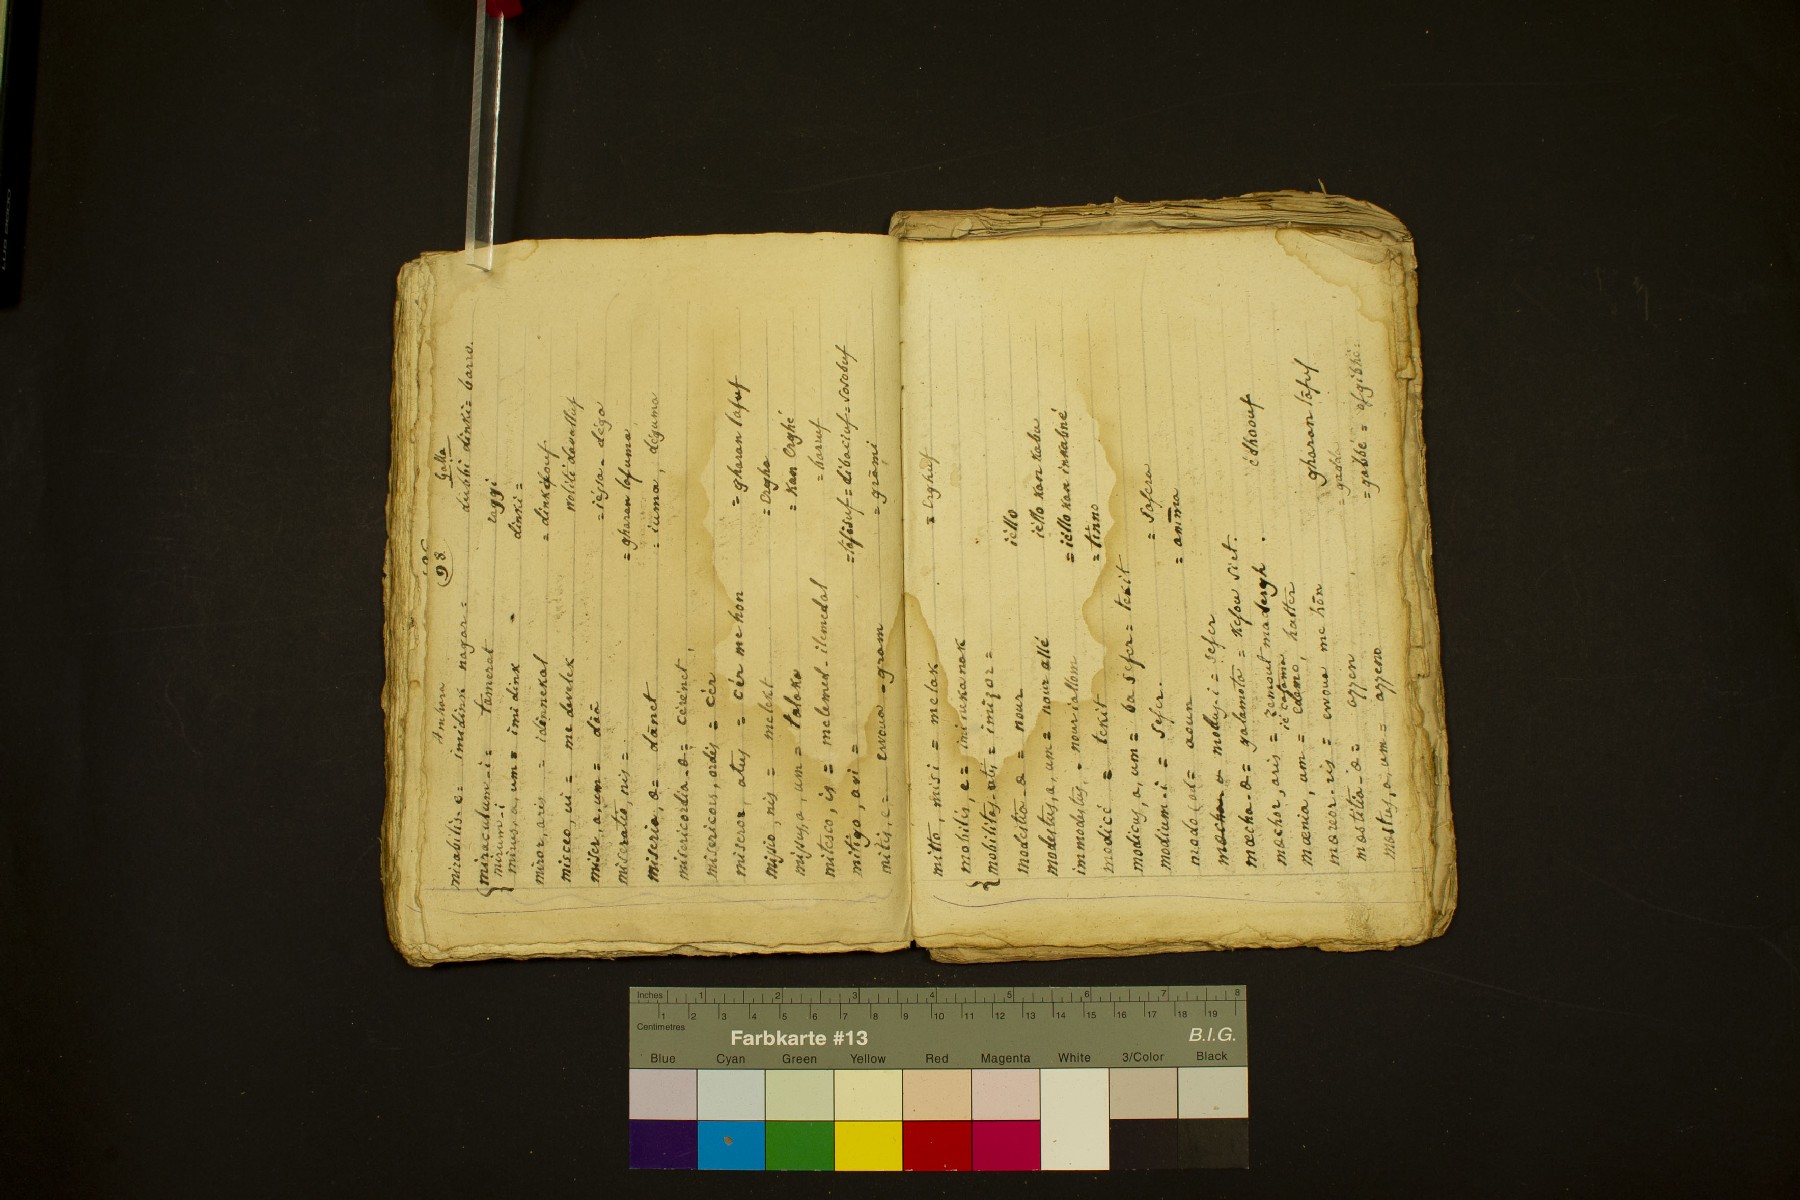 Amhara 98. Galla
mirabilis-e = imidink nagar = dubbi dinki = barro.
miraculum-i = tamerat raggi
mirum-i
mirus, a, um = imidink dinki =
miror, aris = idinnekal = dinkdouf
misceo, ui = me davelek wolitidavalluf
miser, a, um = dèà = iésa - déga
miseratio, nis = = gharan lafuma
miseria, æ = dànet = iuma, déguma
misericordia-æ = cèrenet,
misericors, ordis = cèr
miseror, atus = cèr me hon = gharan lafuf
missio, nis = melekt = Ergha
missus, a, um = talako = kan Erghé
mitesco, is = melemed - ilemedal = haruf
mitigo, avi = = lafisuf = dibaciuf = sosobuf
mitis, e = ewoua - gram = gràmi
mitto, misi = melak = Erghuf
mobilis, e =
mobilitas-atis = imizor =
modestia-æ = nour iéllo
modestus, a, um = nour allé iéllo kan kabu
immodestus, - nour iallom = iéllo kan inkabné
modicè = tekit = tinno
modicus, a, um = ba sefer = tekit
modium-i = sefer. = safera
modo (ad = aoun = amma
modus-i = sefer
mæcha-æ = galamota = kesou siet.
mæchor, aris = zemout madergh. èdhoouf
ié casama
mænia, um = edemo, hatter
mæror-ris = ewoua me hòn gharan làfuf
mæstitia-æ = azzen = gadda
mæstus, a, um = azzeno = gabbé =
Inches 1 2 3 4 5 6 7 8
Centimetres 1 2 3 4 5 6 7 8 9 10 11 12 13 14 15 16 17 18 19
Farbkarte #13 B.I.G.
Blue Cyan Green Yellow Red Magenta White 3/Color Black